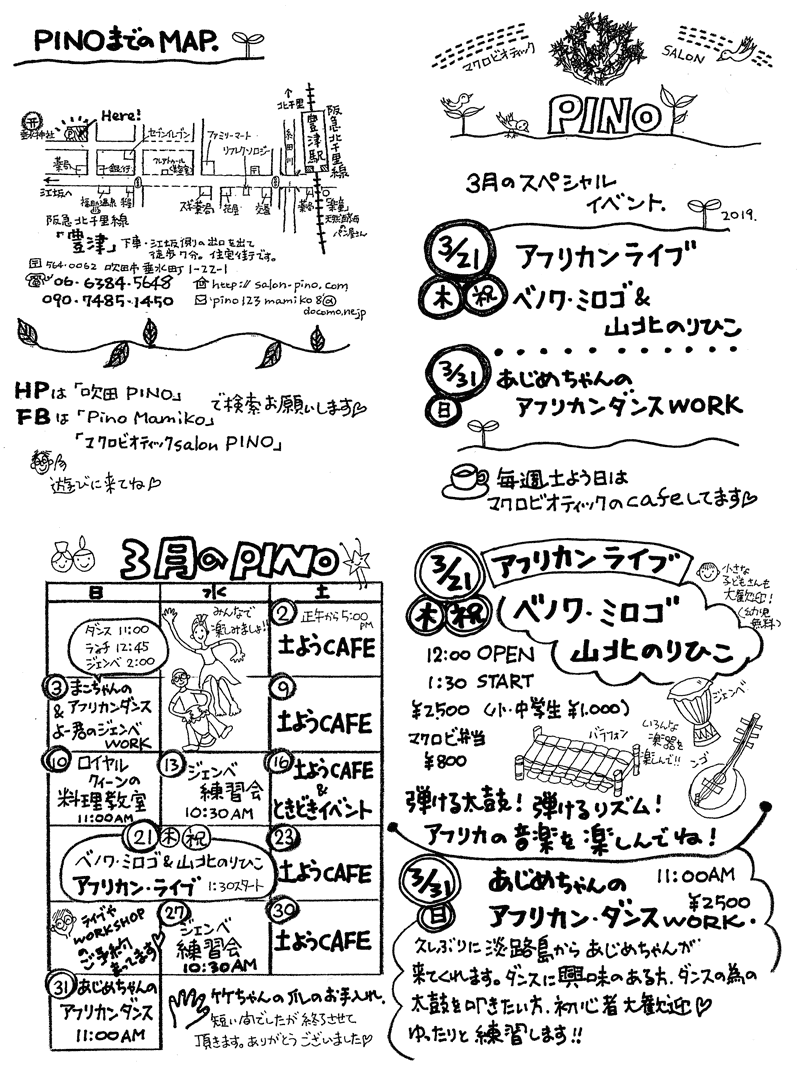 PINOまでのMAP.
Here!
垂水神社
セブンイレブン
ファミリーマート
リフレクソロジー
北千里
糸田川
豊津駅
阪急北千里線
薬局
銀行
江坂へ
スギ薬局
花屋
交番
薬局
「楽童」
天然酵母の
パン屋さん
阪急北千里線
「豊津」下車・江坂側の出口を出て
徒歩7分。住宅街です。
〒564-0062 吹田市垂水町1-22-1
06-6384-5648
http://salon-pino.com
090-7485-1450
pino123mamiko8@
docomo.ne.jp
HPは「吹田PINO」
FBは「Pino Mamiko」
「マクロビオティックsalon PINO」
で検索お願いします♡
遊びに来てね♡
マクロビオティック
SALON
PINO
3月のスペシャル
イベント.
2019.
3/21
木 祝
アフリカンライブ
ベノワ・ミロゴ&
山北のりひこ
3/31
日
あじめちゃんの
アフリカンダンスWORK
毎週土よう日は
マクロビオティックのcafeしてます♡
3月のPINO
日 水 土
ダンス 11:00
ランチ 12:45
ジェンベ 2:00
みんなで
楽しみましょ!!
2 正午から5:00
PM
土ようCAFE
3 まこちゃんの
&アフリカンダンス
よー君のジェンベ
WORK
9
土ようCAFE
10 ロイヤル
クィーンの
料理教室
11:00AM
13 ジェンベ
練習会
10:30AM
16 土ようCAFE
&
ときどきイベント
21 木 祝
ベノワ・ミロゴ&山北のりひこ
アフリカン・ライブ 1:30スタート
23
土ようCAFE
ライブや
WORKSHOP
のご予約
まってます♡
27 ジェンベ
練習会
10:30AM
30
土ようCAFE
31 あじめちゃんの
アフリカンダンス
11:00AM
竹ちゃんの爪のお手入れ.
短い間でしたが終らさせて
頂きます。ありがとうございました♡
3/21
木 祝
アフリカンライブ
小さな
子どもさんも
大歓迎!
(幼児
無料)
ベノワ・ミロゴ
山北のりひこ
12:00 OPEN
1:30 START
¥2500 (小・中学生 ¥1,000)
マクロビ弁当
¥800
バラフォン
ジェンベ
いろんな
楽器を
楽しんで!!
ンゴニ
弾ける太鼓! 弾けるリズム!
アフリカの音楽を楽しんでね!
3/31
日
あじめちゃんの
11:00AM
¥2500
アフリカン・ダンスWORK.
久しぶりに淡路島からあじめちゃんが
来てくれます。ダンスに興味のある方、ダンスの為の
太鼓を叩きたい方、初心者大歓迎♡
ゆったりと練習します!!